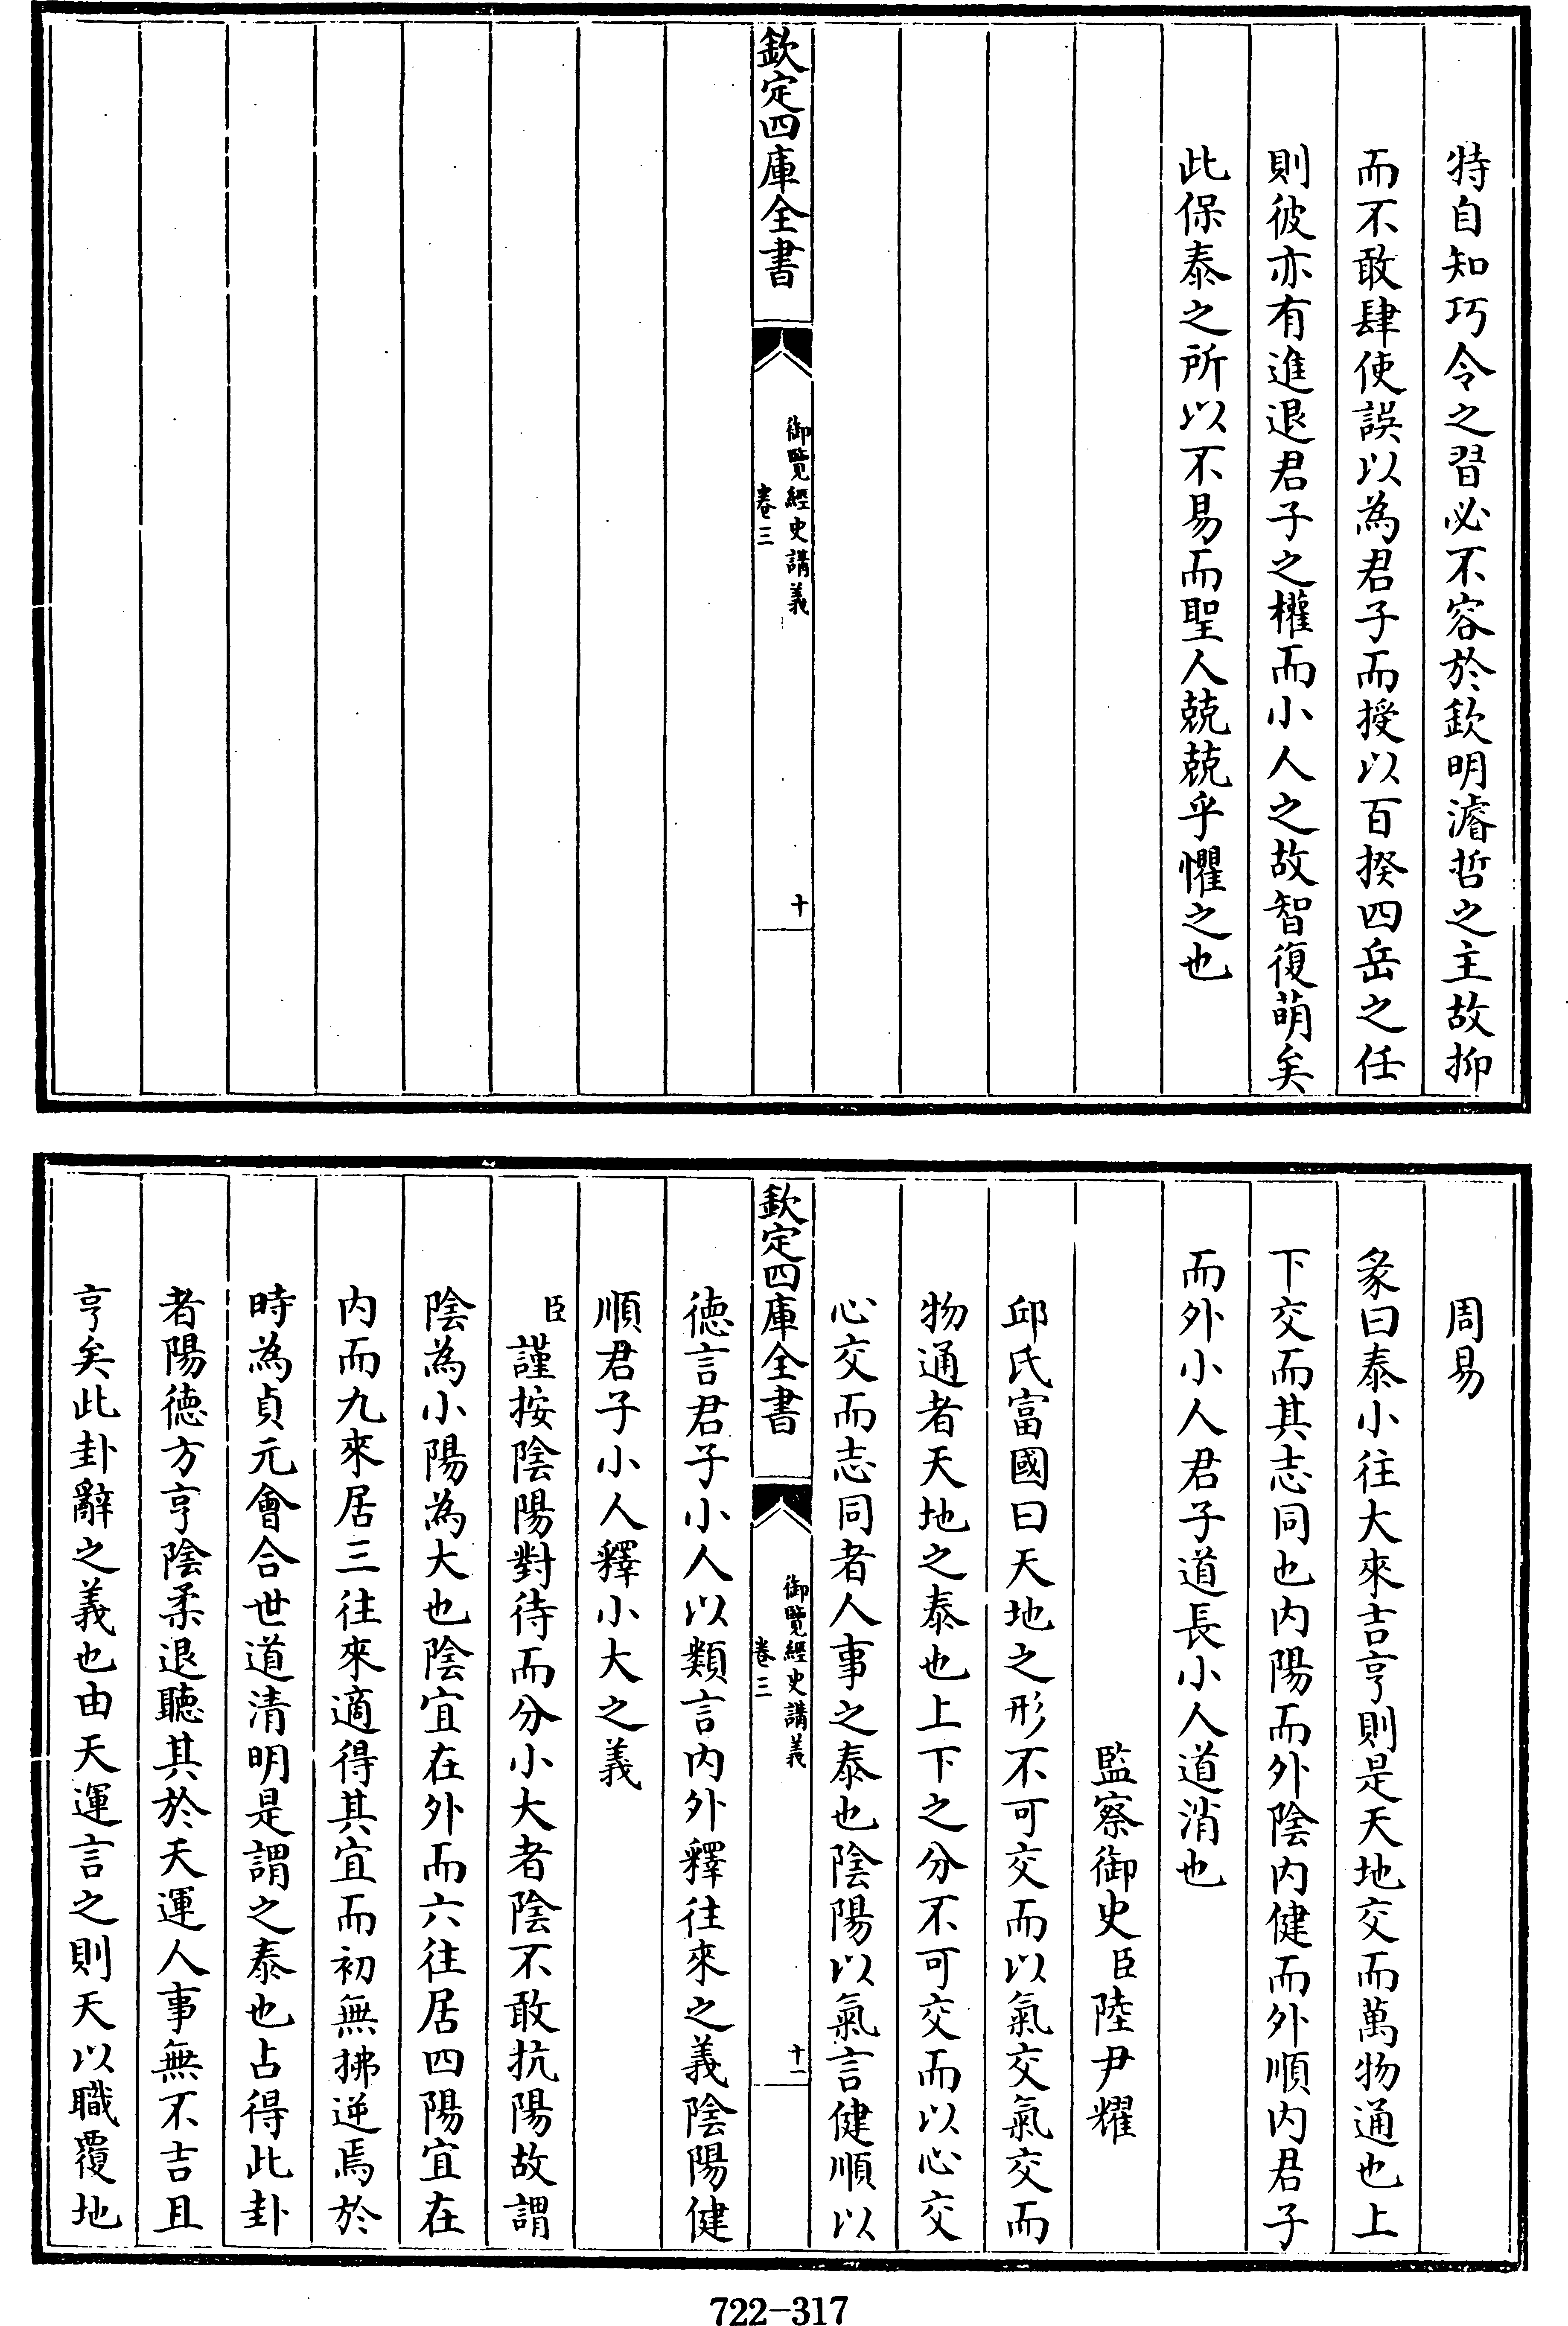 特自知巧令之習必不容於欽明濬哲之主故抑
而不敢肆使誤以為君子而授以百揆四岳之任
則彼亦有進退君子之權而小人之故智復萌矣
此保泰之所以不易而聖人兢兢乎懼之也
欽定四庫全書
御覽經史講義
卷三
十
周易
彖曰泰小往大來吉亨則是天地交而萬物通也上
下交而其志同也内陽而外陰内健而外順内君子
而外小人君子道長小人道消也
監察御史臣陸尹耀
邱氏富國曰天地之形不可交而以氣交氣交而
物通者天地之泰也上下之分不可交而以心交
心交而志同者人事之泰也陰陽以氣言健順以
欽定四庫全書
御覽經史講義
卷三
十一
德言君子小人以類言内外釋往來之義陰陽健
順君子小人釋小大之義
臣謹按陰陽對待而分小大者陰不敢抗陽故謂
陰為小陽為大也陰宜在外而六往居四陽宜在
内而九來居三往來適得其宜而初無拂逆焉於
時為貞元會合世道清明是謂之泰也占得此卦
者陽德方亨陰柔退聽其於天運人事無不吉且
亨矣此卦辭之義也由天運言之則天以職覆地
722-317